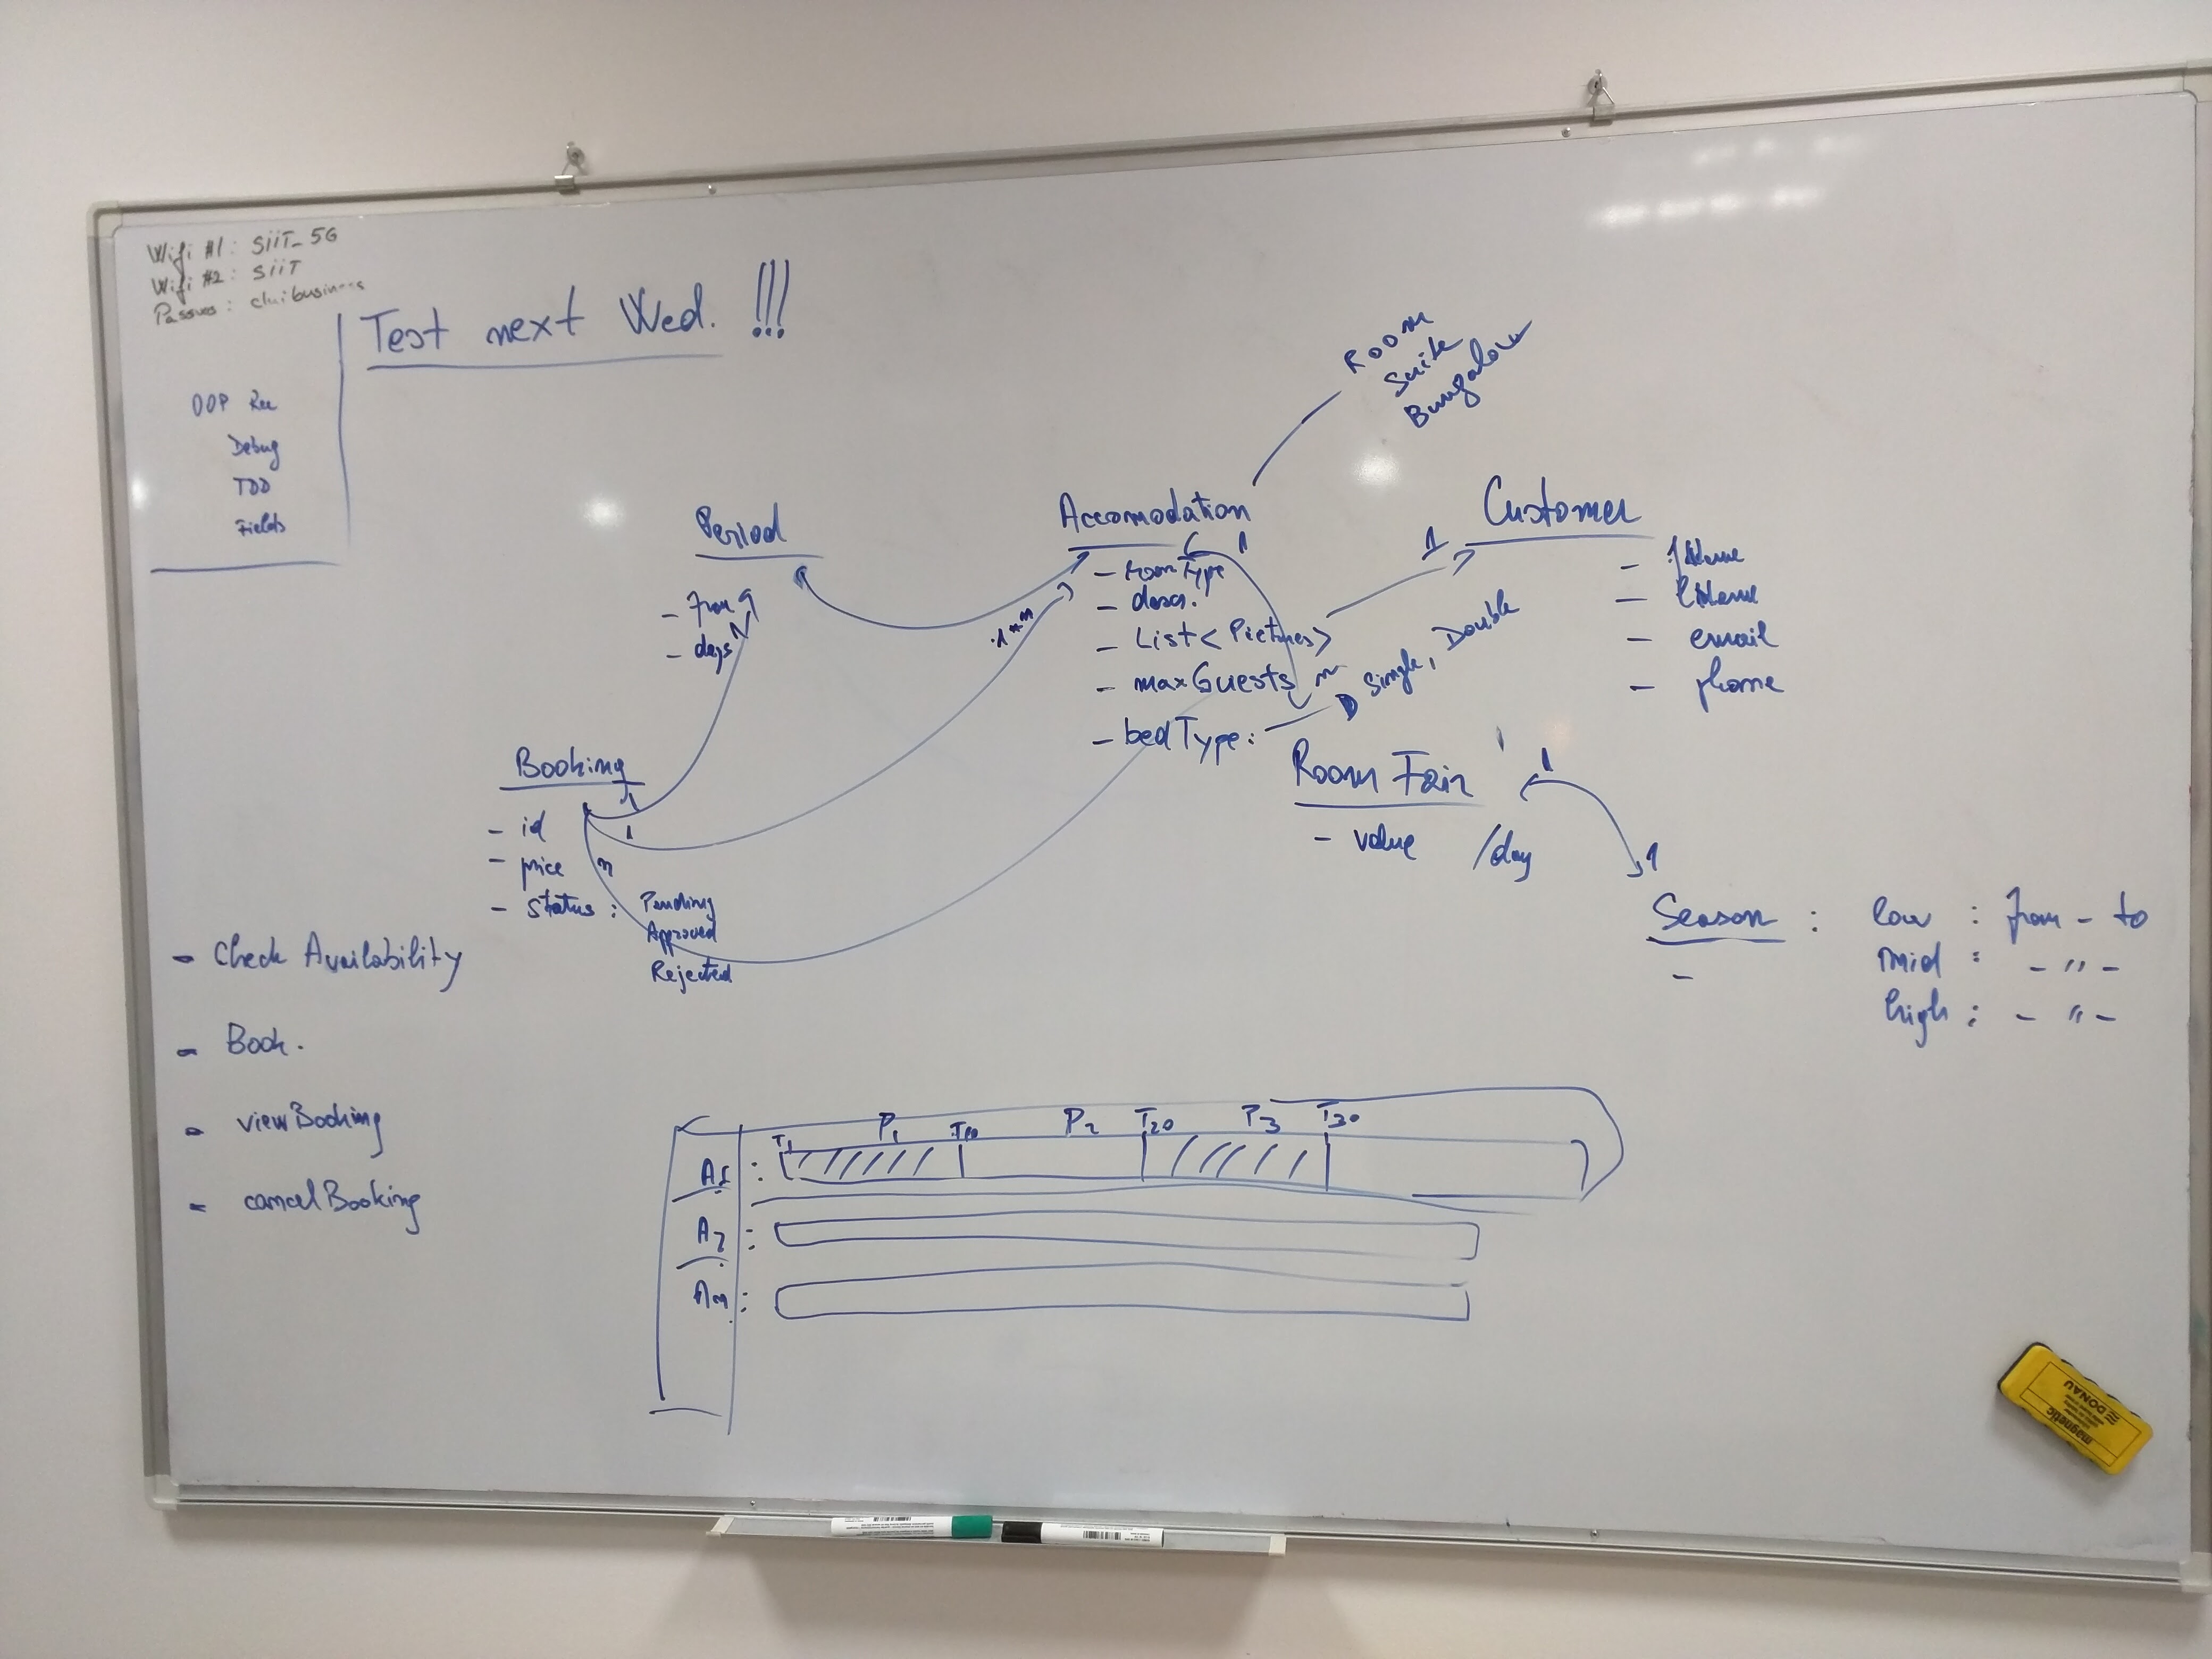 Wifi #1: SiiT_5G
Wifi #2: SiiT
Test next Wed. !!!
OOP Rec
Debug
TDD
Fields
Room
Suite
Bungalow
Period
- from
- days
Accomodation
- roomType
- descr.
- List<Pictures>
- maxGuests
- bedType:
Single, Double
1
n
1**
Customer
1
- fName
- lName
- email
- phone
Booking
1
1
n
- id
- price
- status:
Pending
Approved
Rejected
Room Fair
- value /day
1
1
Season : low : from - to
- mid : - " -
high : - " -
- Check Availability
- Book.
- viewBooking
- cancelBooking
T1 P1 T10 P2 T20 P3 T30
A1 :
A2 :
An :
magnetic
DONAU